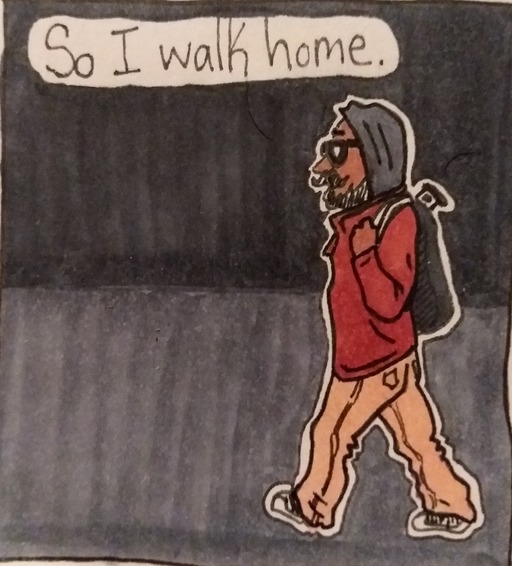 So I walk home.